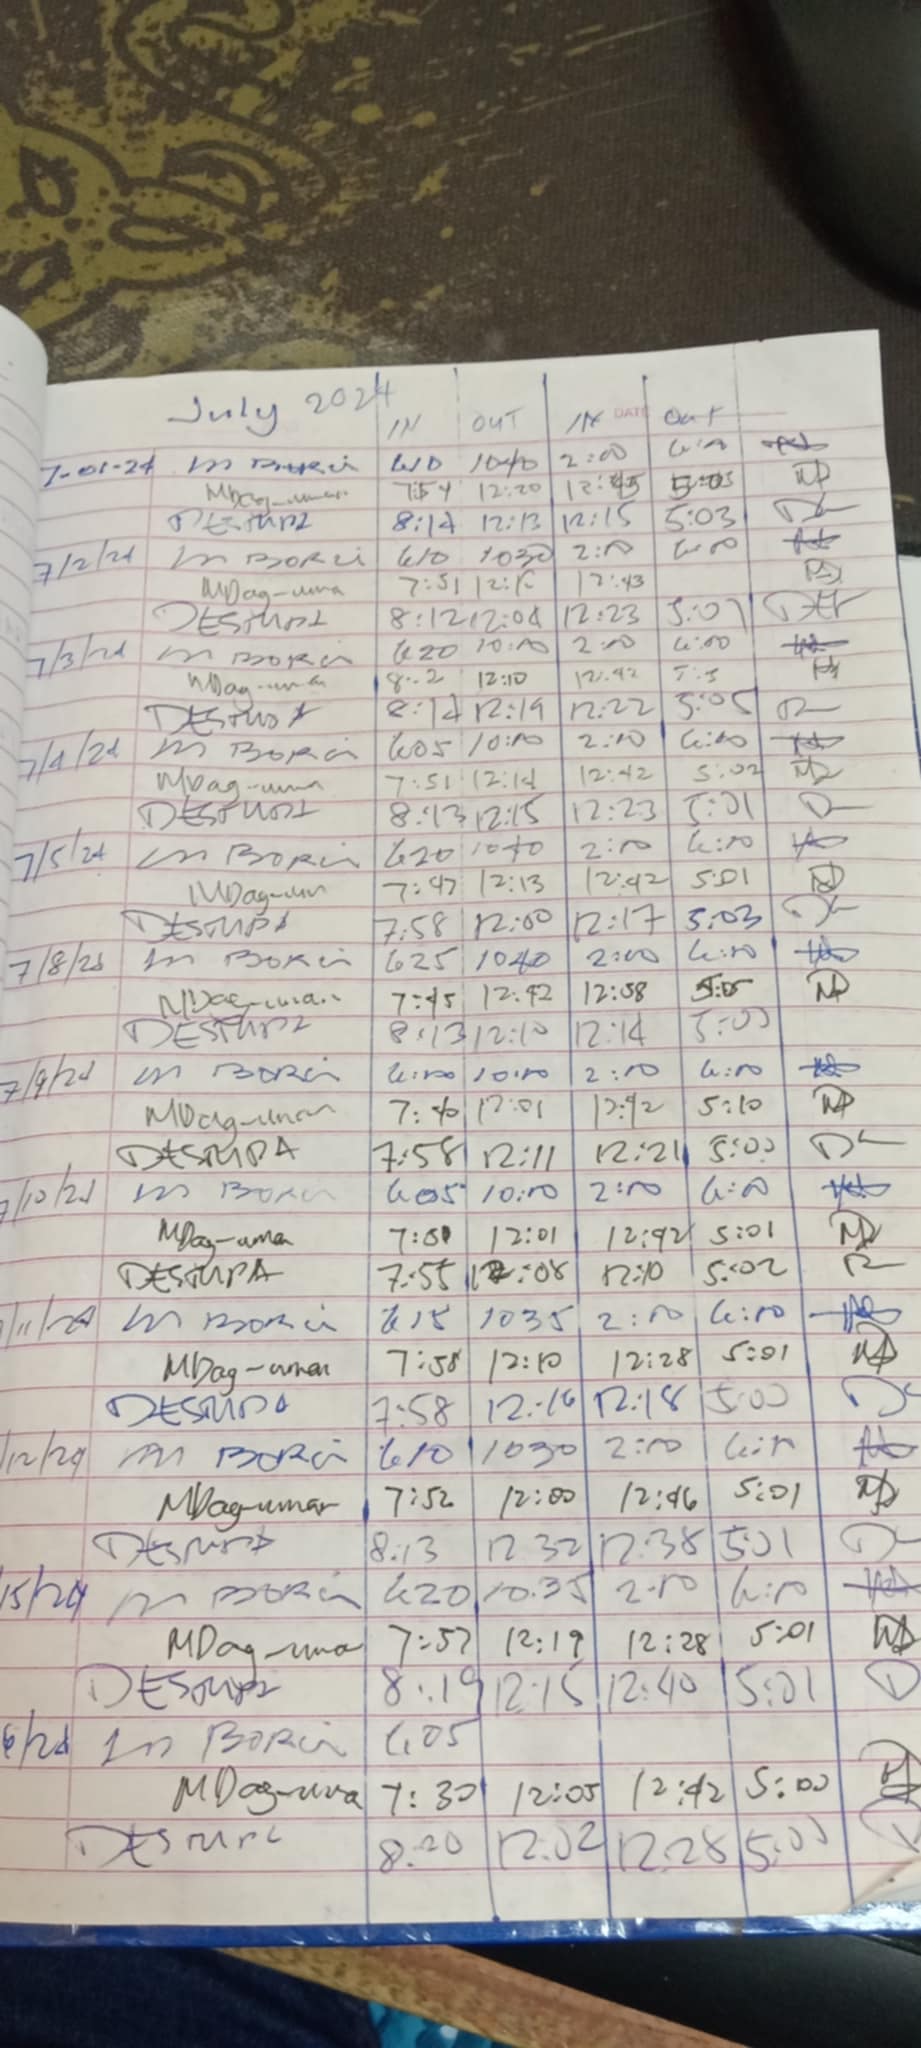 July 2024 IN OUT IN OUT
DATE
7-01-24 m Borci 610 1040 2:00
MDag-uman 7:54 12:20 12:45 5:03
DESTUPA 8:14 12:13 12:15 5:03
7/2/24 m Borci 610 1030 2:00 6:00
MDag-uma 7:51 12:43
DESTUPA 8:12 12:08 12:23 5:01
7/3/24 m Borci 620 10:00 2:00 6:00
MDag-uma 12:10 12:42
DESTUPA 8:14 12:19 12:22 5:05
7/4/24 m Borci 605 10:00 2:00 6:00
MDag-uma 7:51 12:14 12:42 5:02
DESTUPA 8:13 12:15 12:23 5:01
7/5/24 m Borci 620 1040 2:00 6:00
MDag-un 7:47 12:13 12:42 5:01
DESTUPA 7:58 12:00 12:17 5:03
7/8/24 m Borci 625 1040 2:00 6:00
MDag-uman 7:45 12:42 12:58 5:05
DESTUPA 8:13 12:10 12:14 5:00
7/9/24 m Borci 6:00 10:00 2:00 6:00
MDag-uman 7:40 12:01 12:42 5:10
DESTUPA 7:58 12:11 12:21 5:00
/10/24 m Borci 605 10:00 2:00 6:00
MDag-uman 12:01 12:42 5:01
DESTUPA 7:55 12:08 12:10 5:02
/11/24 m Borci 615 1035 2:00 6:00
MDag-uman 7:58 12:10 12:28 5:01
DESTUPA 7:58 12:16 12:18 5:00
/12/24 m Borci 610 1030 2:00
MDag-uman 7:52 12:00 12:46 5:01
DESTUPA 8:13 12:32 12:38 5:01
15/24 m Borci 620 10:35 2:00 6:00
MDag-uma 7:57 12:19 12:28 5:01
DESTUPA 8:19 12:15 12:40 5:01
6/24 m Borci 605
MDag-uma 7:30 12:05 12:42 5:00
DESTUPA 8:20 12:02 12:28 5:00